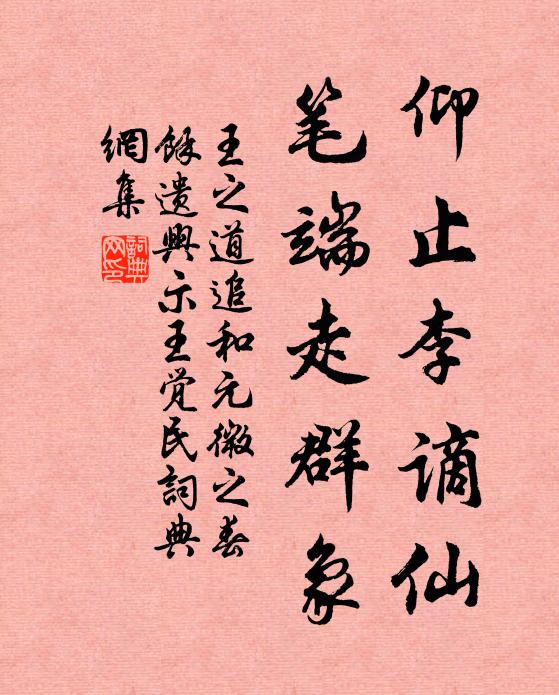 仰止李謫仙
笔端走群象
王之道追和元微之春
馀遗興示王觉民詞典
網集
詞典
网印